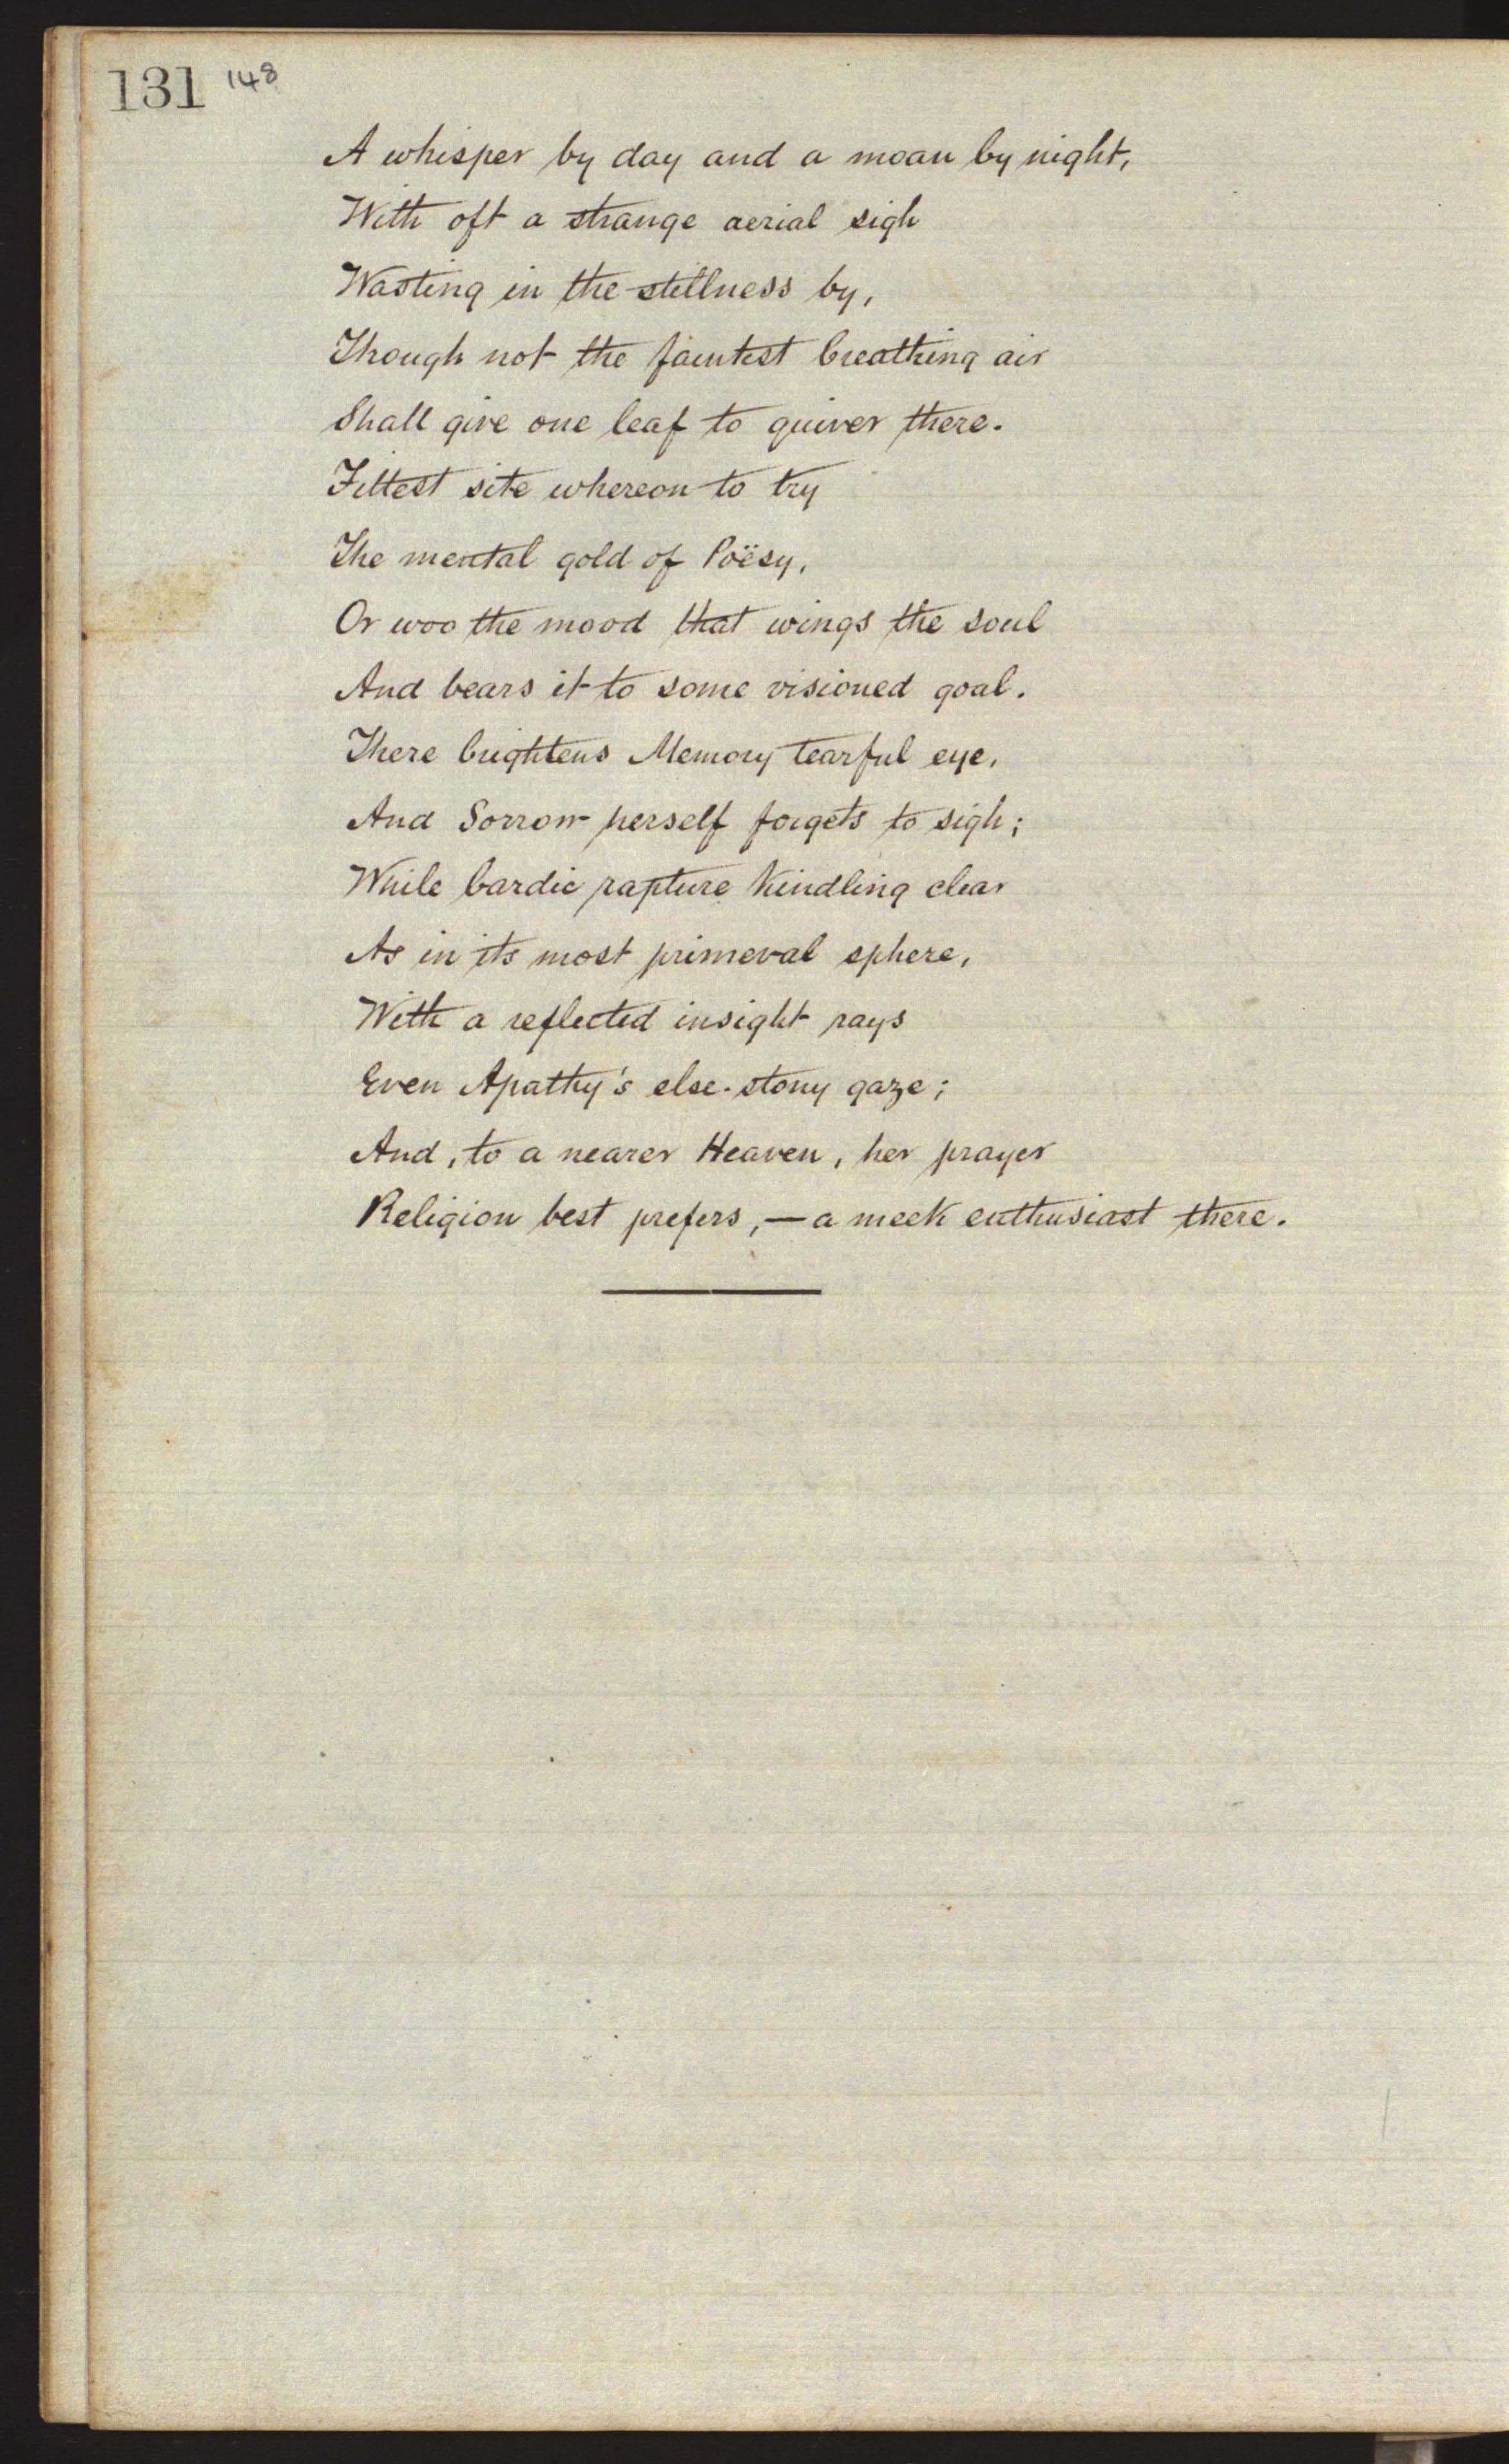 131 148
A whisper by day and a moan by night,
With oft a strange aerial sigh
Wasting in the stillness by,
Though not the faintest breathing air
Shall give one leaf to quiver there.
Fittest site whereon to try
The mental gold of Poësy,
Or woo the mood that wings the soul
And bears it to some visioned goal.
There brightens Memory tearful eye,
And Sorrow herself forgets to sigh;
While bardic rapture kindling clear
As in its most primeval sphere,
With a reflected insight rays
Even Apathy's else-stony gaze;
And, to a nearer Heaven, her prayer
Religion best prefers,—a meek enthusiast there.